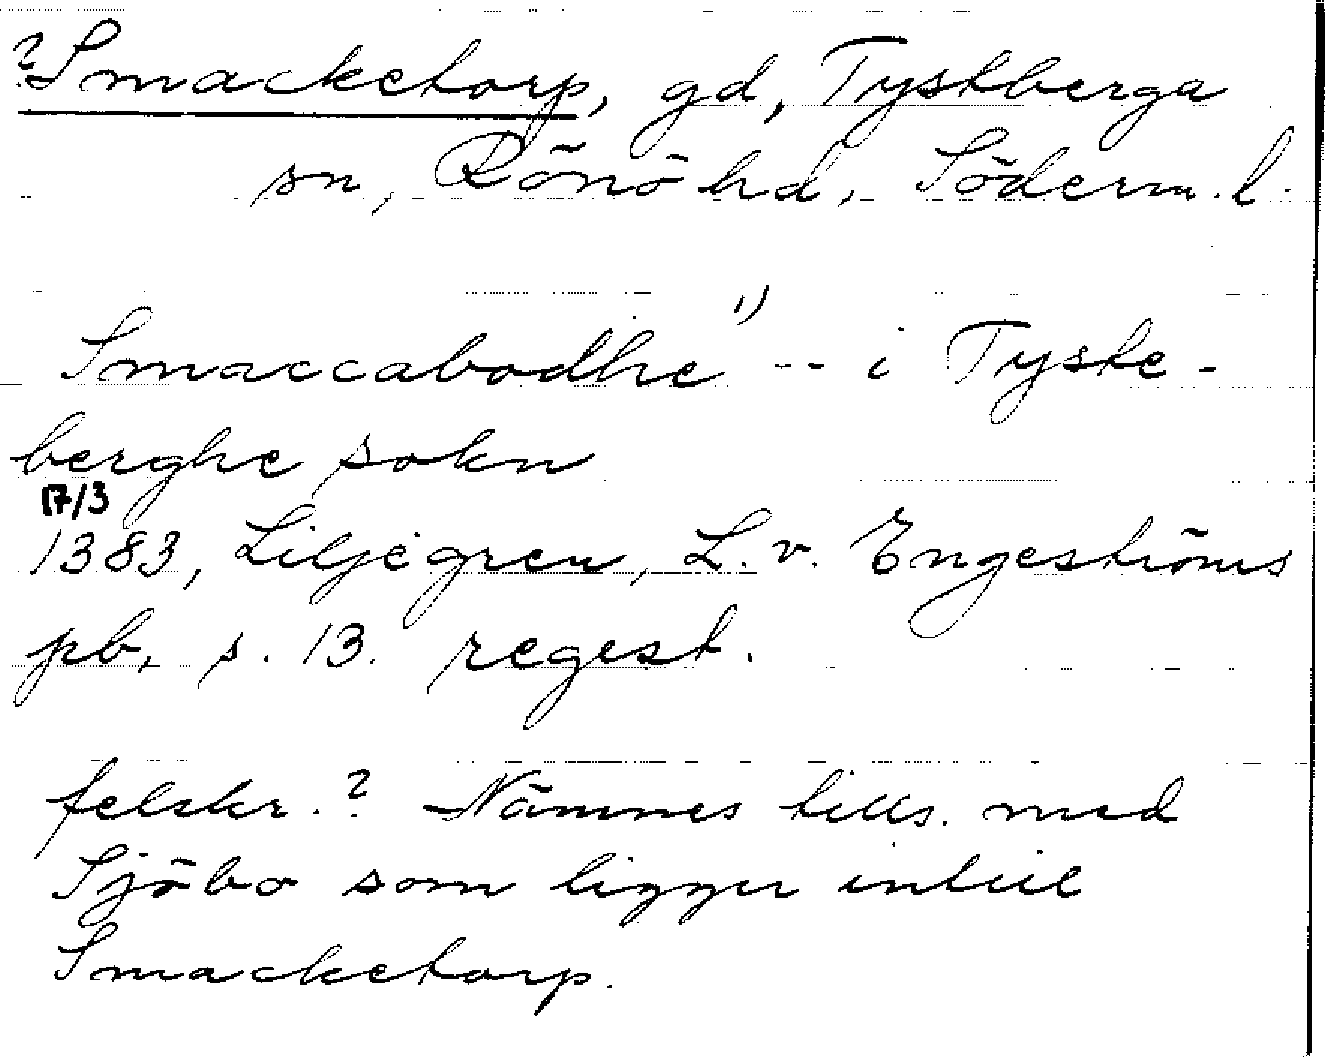 ? Smacketorp, gd, Tystberga
sn, Rönö hd, Söderm. l.
Smaccabodhe 1) -- i Tyste-
berghe sokn
17/3
1383, Liljegren, L. v. Engeströms
pb, s. 13. regest.
felskr.? Nämnes tills. med
Sjöbo som ligger intill
Smacketorp.